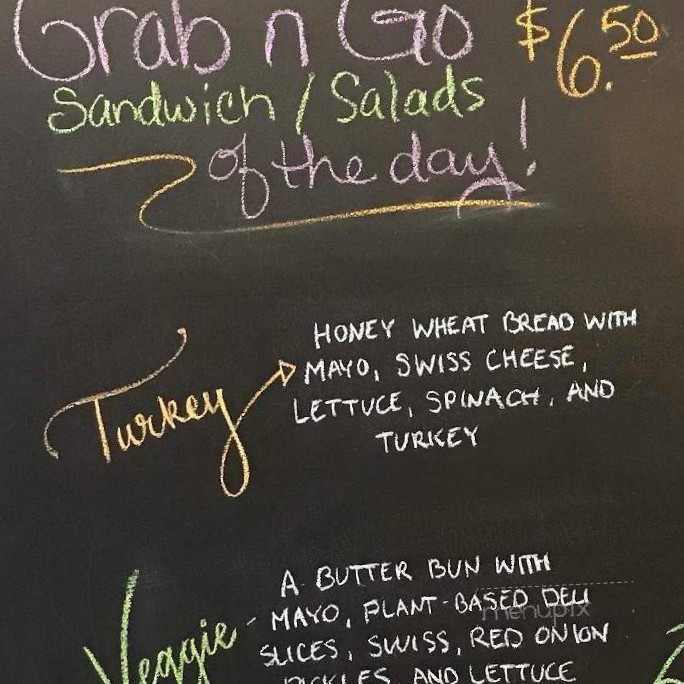 Grab n Go $6.50
Sandwich / Salads
of the day!
HONEY WHEAT BREAD WITH
MAYO, SWISS CHEESE,
Turkey LETTUCE, SPINACH, AND
TURKEY
A BUTTER BUN WITH
MAYO, PLANT-BASED DELI
menupix
Veggie - SLICES, SWISS, RED ONION
PICKLES, AND LETTUCE